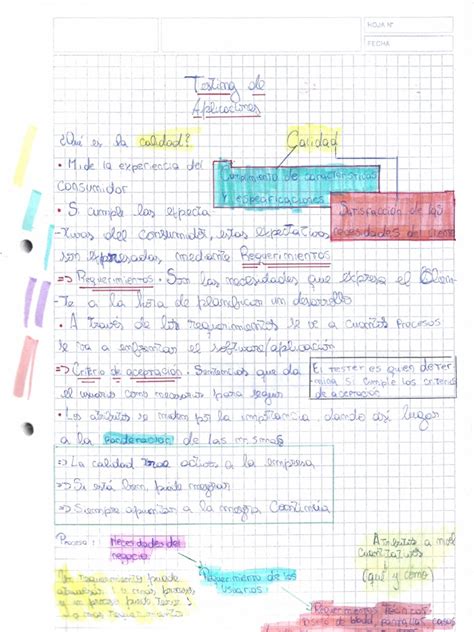 HOJA Nº
FECHA
Testing de
Aplicaciones
¿Qué es la calidad?
Calidad
• Mide la experiencia del
consumidor
Cumplimiento de características
y especificaciones
Satisfacción de las
necesidades del cliente
• Si cumple las especta-
tivas del consumidor, estas espectativas
son expresadas, mediante Requerimientos
=> Requerimientos. Son las necesidades que expresa el Clien-
te a la hora de planifican un desarrollo
• A través de los requerimientos se ve a cuantos procesos
se va a enfrentar el software/aplicación
=> Criterio de aceptación: Sentencias que da
el usuario como necesarios para seguir
El tester es quien deter-
mina si cumple los criterios
de aceptación
• Los atributos se miden por la importancia, dando así lugar
a la Ponderación de las mismas
=> La calidad trae activos a la empresa
=> Si está bien, puede mejorar
=> Siempre apuntar a la mejora Continua
Proceso:
Necesidades del
negocio
Atributos a
Cuantitativos
(qué y cómo)
Un requerimiento puede
Requerimiento de los
Usuarios
y un proceso puede tener 1
o mas requerimientos
Requerimientos Técnicos